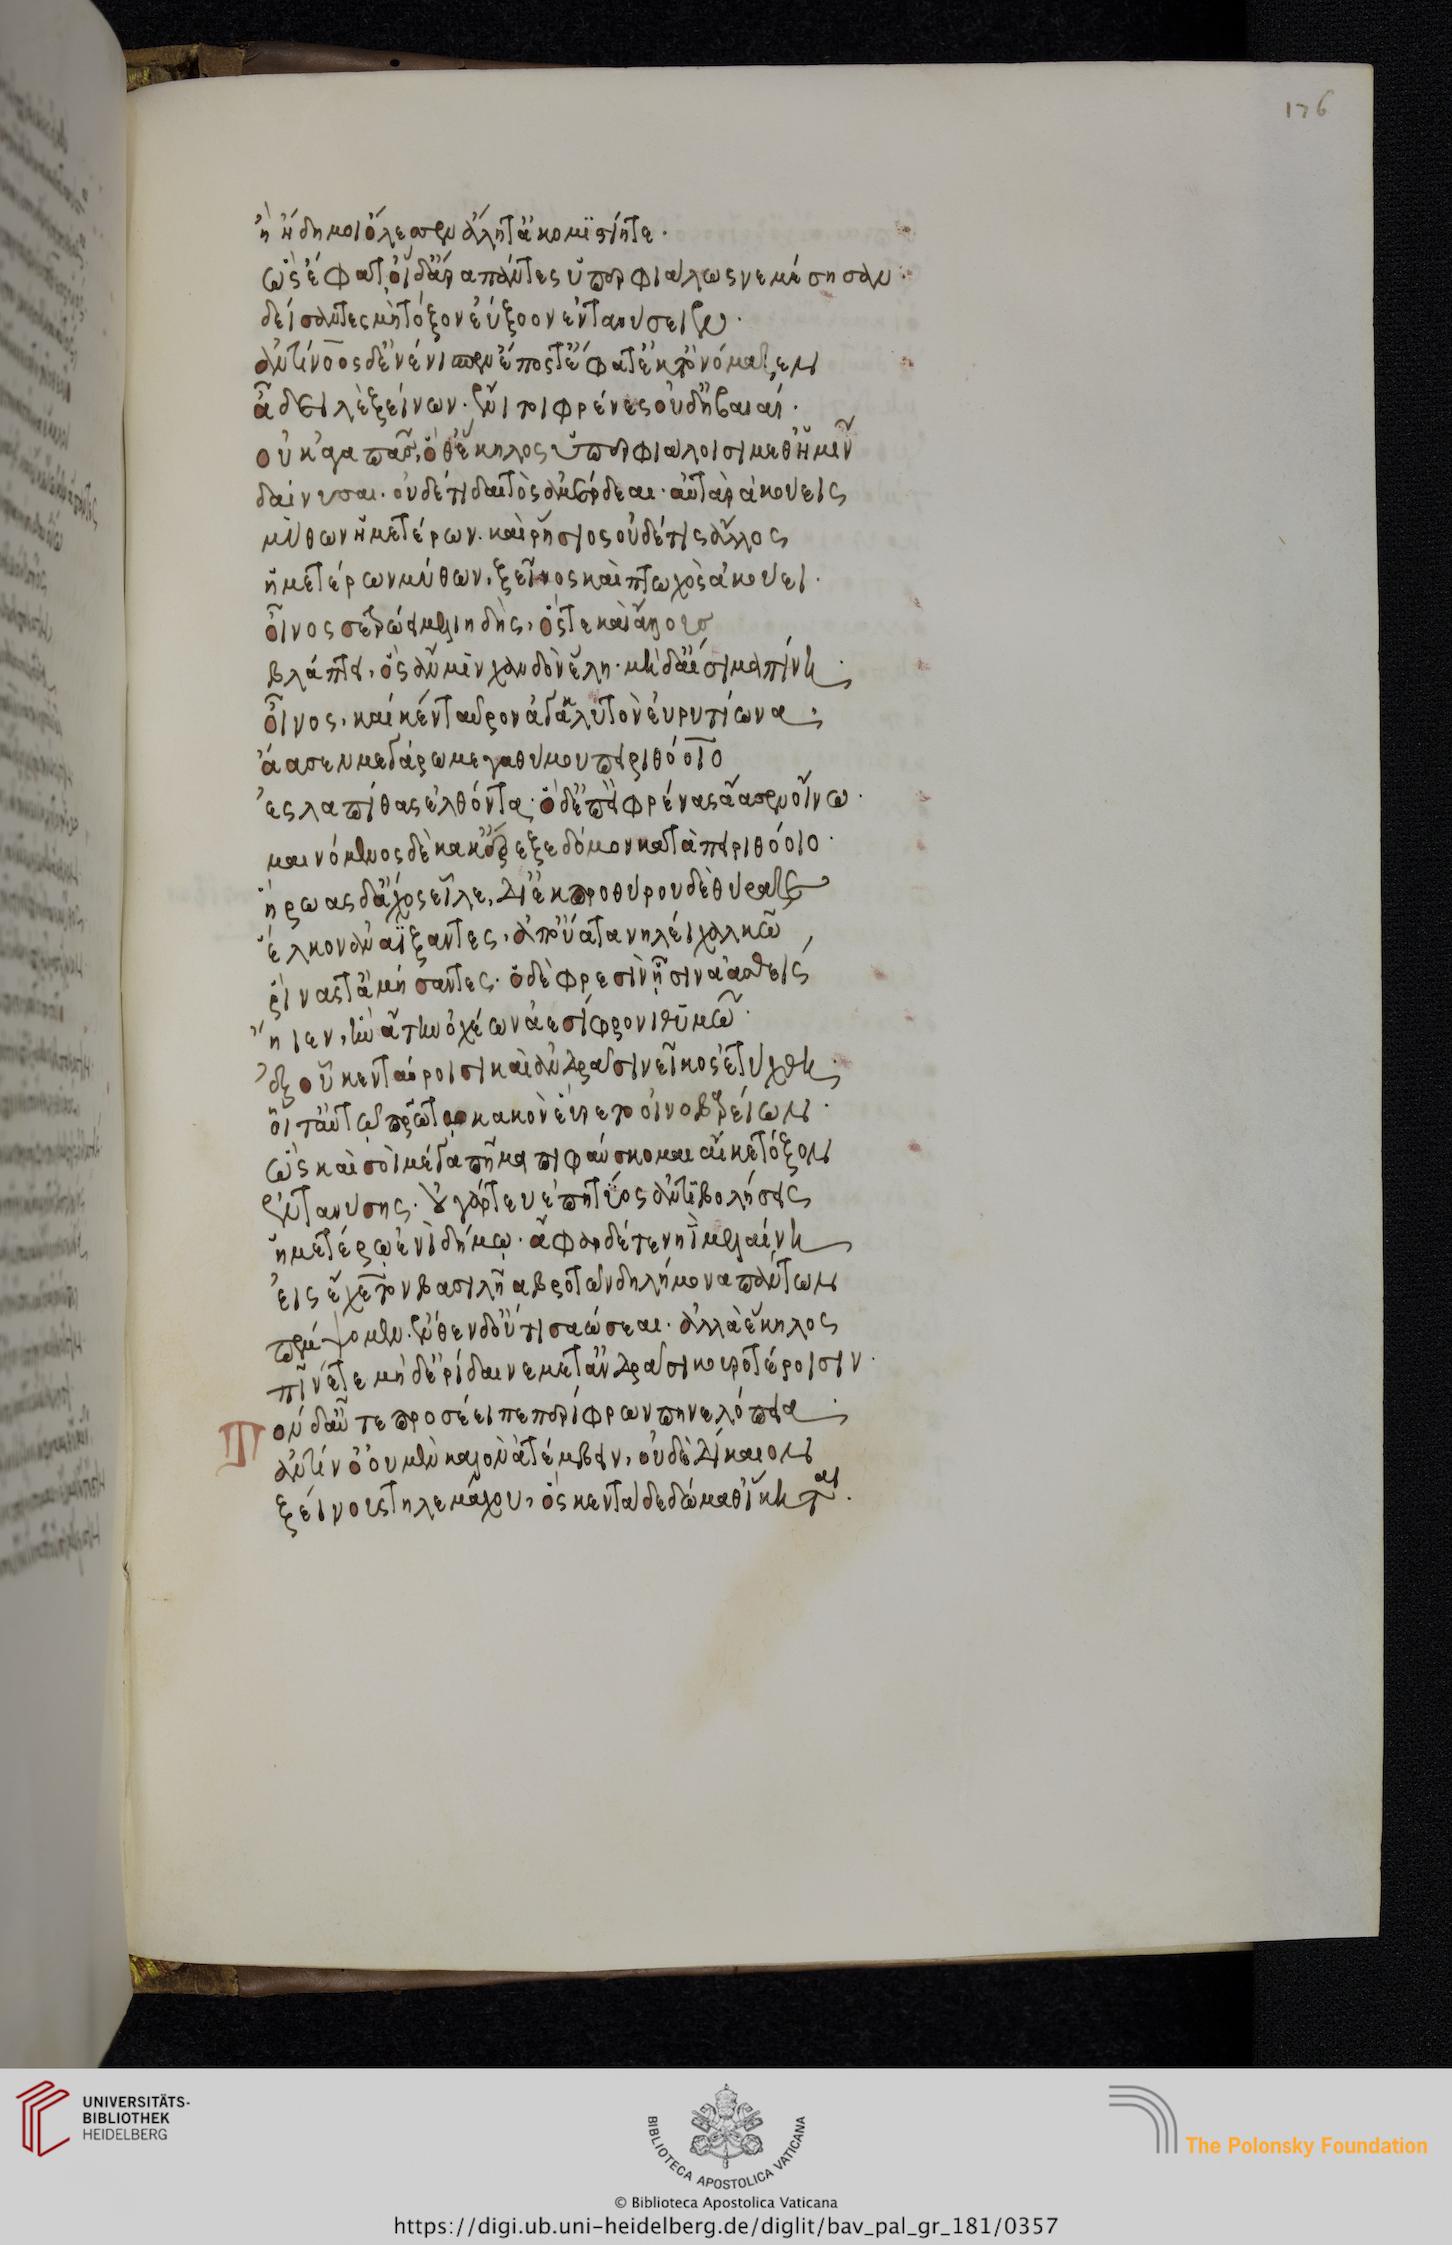 176
ἢ ἤδη μοι ὄλεσσεν ἄλη τ' ἀκομιστίη τε.
ὣς ἔφατ' οἱ δ' ἄρα πάντες ὑπερφιάλως νεμέσησαν.
δείσαντες μὴ τόξον ἐύξοον ἐντανύσειεν.
ἀντίνοος δ' ἐνένιπεν ἔπος τ' ἔφατ' ἔκ τ' ὀνόμαζεν
ἆ δειλὲ ξείνων. ἔνι τοι φρένες οὐδ' ἠβαιαί.
οὐκ ἀγαπᾶς, ὃ θ' ἕκηλος ὑπερφιάλοισι μεθ' ἡμῖν
δαίνυσαι. οὐδέ τι δαιτὸς ἀμέρδεαι. αὐτὰρ ἀκούεις
μύθων ἡμετέρων. καὶ ῥήσιος οὐδέ τις ἄλλος
ἡμετέρων μύθων, ξεῖνος καὶ πτωχὸς ἀκούει.
οἶνος σε τρώει μελιηδὴς, ὅς τε καὶ ἄλλους
βλάπτει, ὃς ἄν μιν χανδὸν ἕλῃ. μὴ δ' αἴσιμα πίνῃ.
οἶνος, καὶ κένταυρον ἀγακλυτὸν ἐυρυτίωνα.
ἄασεν μεγάρω μεγαθύμου πειριθόοιο
ἐς λαπίθας ἐλθόντα. ὁ δ' ἐπεὶ φρένας ἄασεν οἴνω.
μαινόμενος δὲ κάκ' ἔρεξε δόμον κατὰ πειριθόοιο.
ἥρωας δ' ἄχος εἷλε, δι' ἐκ προθύρου δὲ θύραζε
ἕλκον ἀναΐξαντες, ἀπ' οὔατα νηλέι χαλκῶ
ῥῖνας τ' ἀμήσαντες. ὁ δὲ φρεσὶν ᾗσιν ἀασθεὶς
ἤιεν, ἣν ἄτην ὀχέων ἀεσίφρονι θυμῶ.
ἐξ οὗ κενταύροισι καὶ ἀνδράσι νεῖκος ἐτύχθη.
οἷ τ' αὐτῷ πρώτῳ κακὸν εὕρετο οἰνοβαρείων.
ὣς καὶ σοὶ μέγα πῆμα πιφαύσκομαι αἴ κε τόξον
ἐντανύσῃς. οὐ γάρ τευ ἐπητύος ἀντιβολήσεις
ἡμετέρῳ ἐνὶ δήμῳ. ἄφαρ δέ σε νηὶ μελαίνῃ
εἰς ἔχετον βασιλῆα βροτῶν δηλήμονα πάντων
πέμψομεν. ἔνθεν δ' οὔτι σαώσεαι. ἀλλὰ ἕκηλος
πῖνέ τε μηδ' ἐρίδαινε μετ' ἀνδράσι κουροτέροισιν.
Τοὺ δ' αὖτε προσέειπε περίφρων πηνελόπεια.
ἀντίνο' οὐ μὲν καλὸν ἀτέμβειν, οὐδὲ δίκαιον
ξείνους τηλεμάχου, ὅς κεν τάδε δώμαθ' ἵκηται.
UNIVERSITÄTS-
BIBLIOTHEK
HEIDELBERG
BIBLIOTECA APOSTOLICA VATICANA
The Polonsky Foundation
© Biblioteca Apostolica Vaticana
https://digi.ub.uni-heidelberg.de/diglit/bav_pal_gr_181/0357